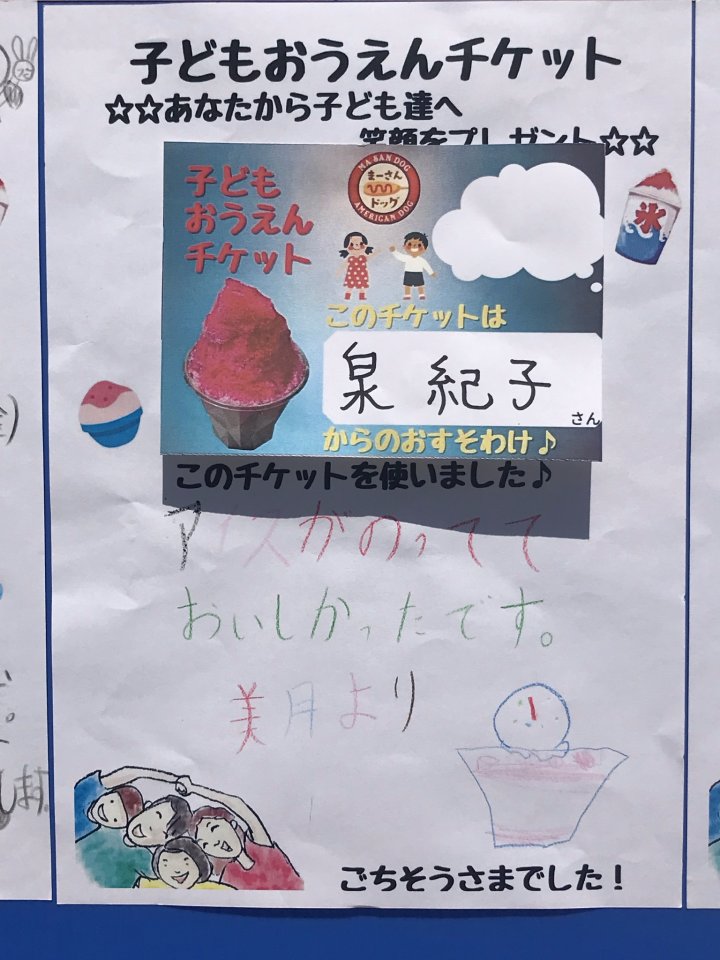 子どもおうえんチケット
☆☆あなたから子ども達へ
笑顔をプレゼント☆☆
子ども
おうえん
チケット
MA SAN DOG
まーさん
ドッグ
AMERICAN DOG
氷
このチケットは
泉 紀子
さん
からのおすそわけ♪
このチケットを使いました♪
アイスがのってて
おいしかったです。
美月より
ごちそうさまでした！